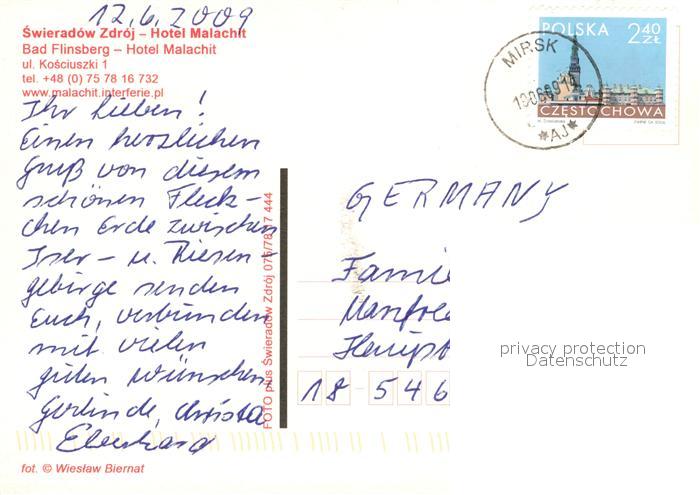 12.6.2009
Świeradów Zdrój – Hotel Malachit
Bad Flinsberg – Hotel Malachit
ul. Kościuszki 1
tel. +48 (0) 75 78 16 732
www.malachit.interferie.pl
Ihr Lieben!
Einen herzlichen
Gruß von diesem
schönen Fleck-
chen Erde zwischen
Iser- u. Riesen-
gebirge senden
Euch, verbunden
mit vielen
guten Wünschen
Gerlinde, Christa
Eberhard
fot. © Wiesław Biernat
FOTO plus Świeradów Zdrój 075/78 17 444
POLSKA 2 40 ZŁ
CZĘSTOCHOWA
MIRSK
*AJ*
GERMANY
Famil
Manfre
Haupt
18 546
privacy protection
Datenschutz